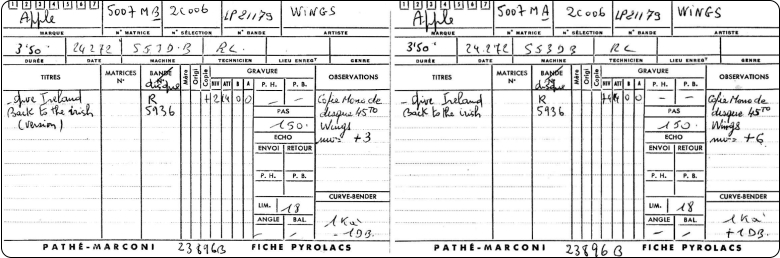 1 2 3 4 5 6 7
Apple
5007 MB
2C006
LP21179
WINGS
MARQUE
N° MATRICE
N° SÉLECTION
N° BANDE
ARTISTE
3'50
24.2.72
S53DB
RL
DURÉE
DATE
MACHINE
TECHNICIEN
LIEU ENREGT
GENRE
TITRES
MATRICES N°
BANDE N°
disque
Mère
Origi
Copie
GRAVURE
NIV ATT B A
P. H.
P. B.
OBSERVATIONS
- Give Ireland
Back to the irish
(version)
R
5936
+2 4 0 0
— —
PAS
150
ECHO
ENVOI RETOUR
P. H. P. B.
LIM. 18
ANGLE BAL.
- -
Copie Mono de
disque 45TO
Wings
+3
CURVE-BENDER
1 Ka
-1DB
PATHÉ-MARCONI
23896B
FICHE PYROLACS
1 2 3 4 5 6 7
Apple
5007 MA
2C006
LP21179
WINGS
MARQUE
N° MATRICE
N° SÉLECTION
N° BANDE
ARTISTE
3'50
24.2.72
S53DB
RL
DURÉE
DATE
MACHINE
TECHNICIEN
LIEU ENREGT
GENRE
TITRES
MATRICES N°
BANDE N°
disque
Mère
Origi
Copie
GRAVURE
NIV ATT B A
P. H.
P. B.
OBSERVATIONS
- Give Ireland
Back to the irish
R
5936
0 0
— —
PAS
150
ECHO
ENVOI RETOUR
P. H. P. B.
LIM. 18
ANGLE BAL.
- -
Copie Mono de
disque 45TO
Wings
+6
CURVE-BENDER
1 Ka
+1DB
PATHÉ-MARCONI
23896B
FICHE PYROLACS